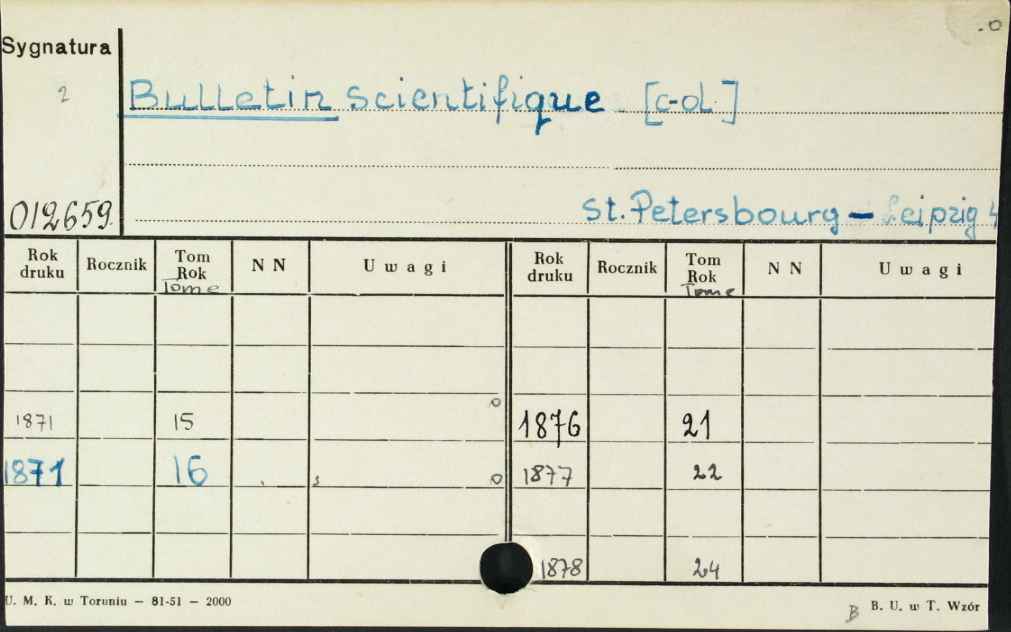 Sygnatura
2
Bulletin scientifique [c-d.]
012659
St. Petersbourg – Leipzig 4
Rok druku Rocznik Tom Rok Tome NN Uwagi Rok druku Rocznik Tom Rok Tome NN Uwagi
1871 15 1876 21
1871 16 1877 22
1878 24
U. M. K. w Toruniu — 81-51 — 2000
B B. U. w T. Wzór